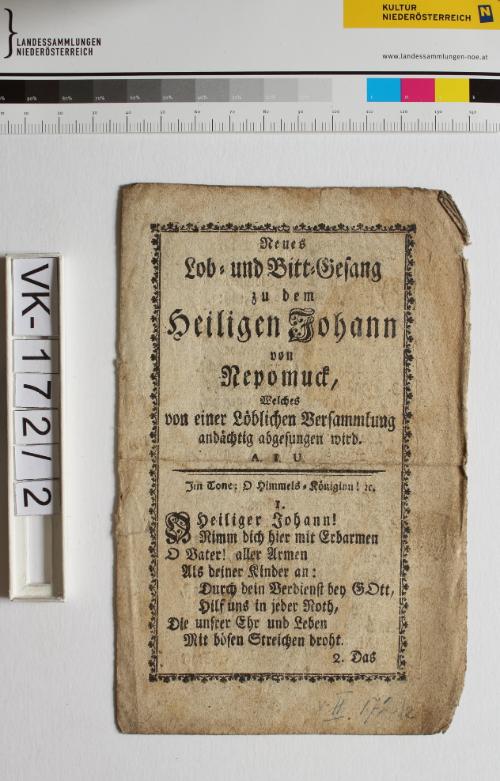 LANDESSAMMLUNGEN
NIEDERÖSTERREICH
KULTUR
NIEDERÖSTERREICH
www.landessammlungen-noe.at
VK-172/2
Neues
Lob- und Bitt-Gesang
zu dem
Heiligen Johann
von
Nepomuck,
Welches
von einer Löblichen Versammlung
andächtig abgesungen wird.
Im Tone: O Himmels-Königinn! ꝛc.
1.
O Heiliger Johann!
Nimm dich hier mit Erbarmen
O Vater! aller Armen
Als deiner Kinder an:
Durch dein Verdienst bey GOtt,
Hilf uns in jeder Noth,
Die unsrer Ehr und Leben
Mit bösen Streichen droht.
2. Das